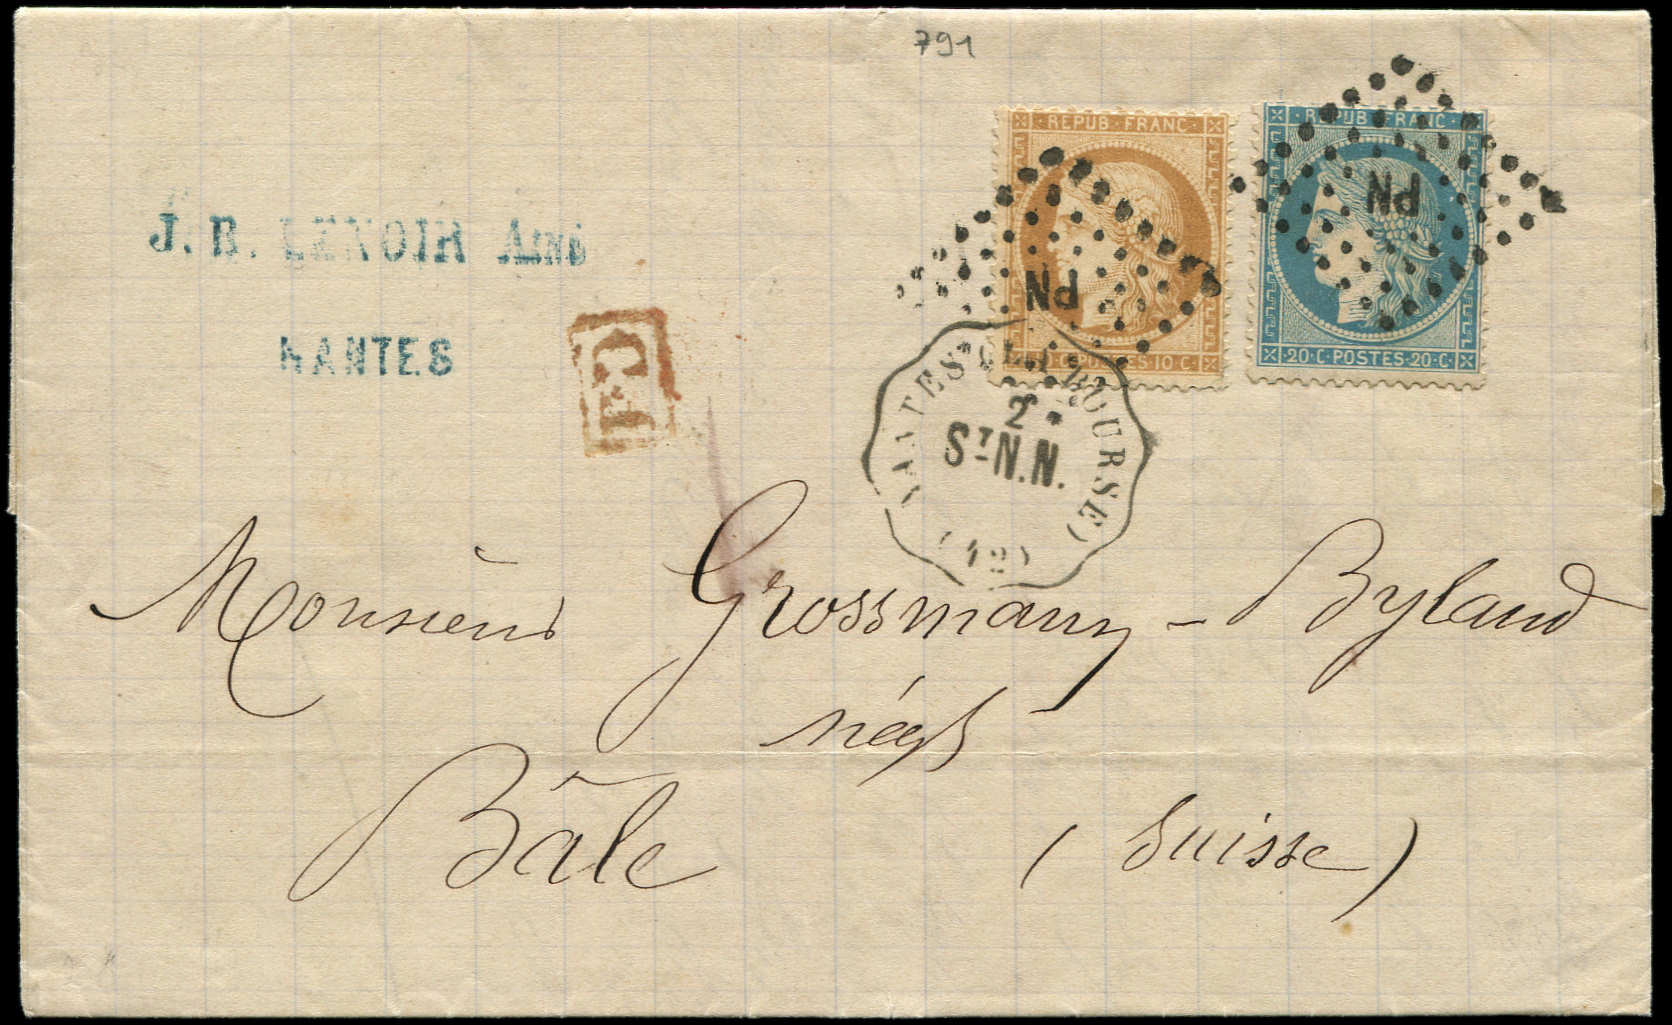 791
REPUB · FRANC
REPUB · FRANC
PN
PN
10·C·POSTES·10·C
20·C·POSTES·20·C
J. B. LENOIR Aîné
NANTES
PD
NANTES BOURSE)
2ᵉ
Sᵀ N.N.
(42)
Monsieur Grossmann - Byland
négt
Bâle (Suisse)